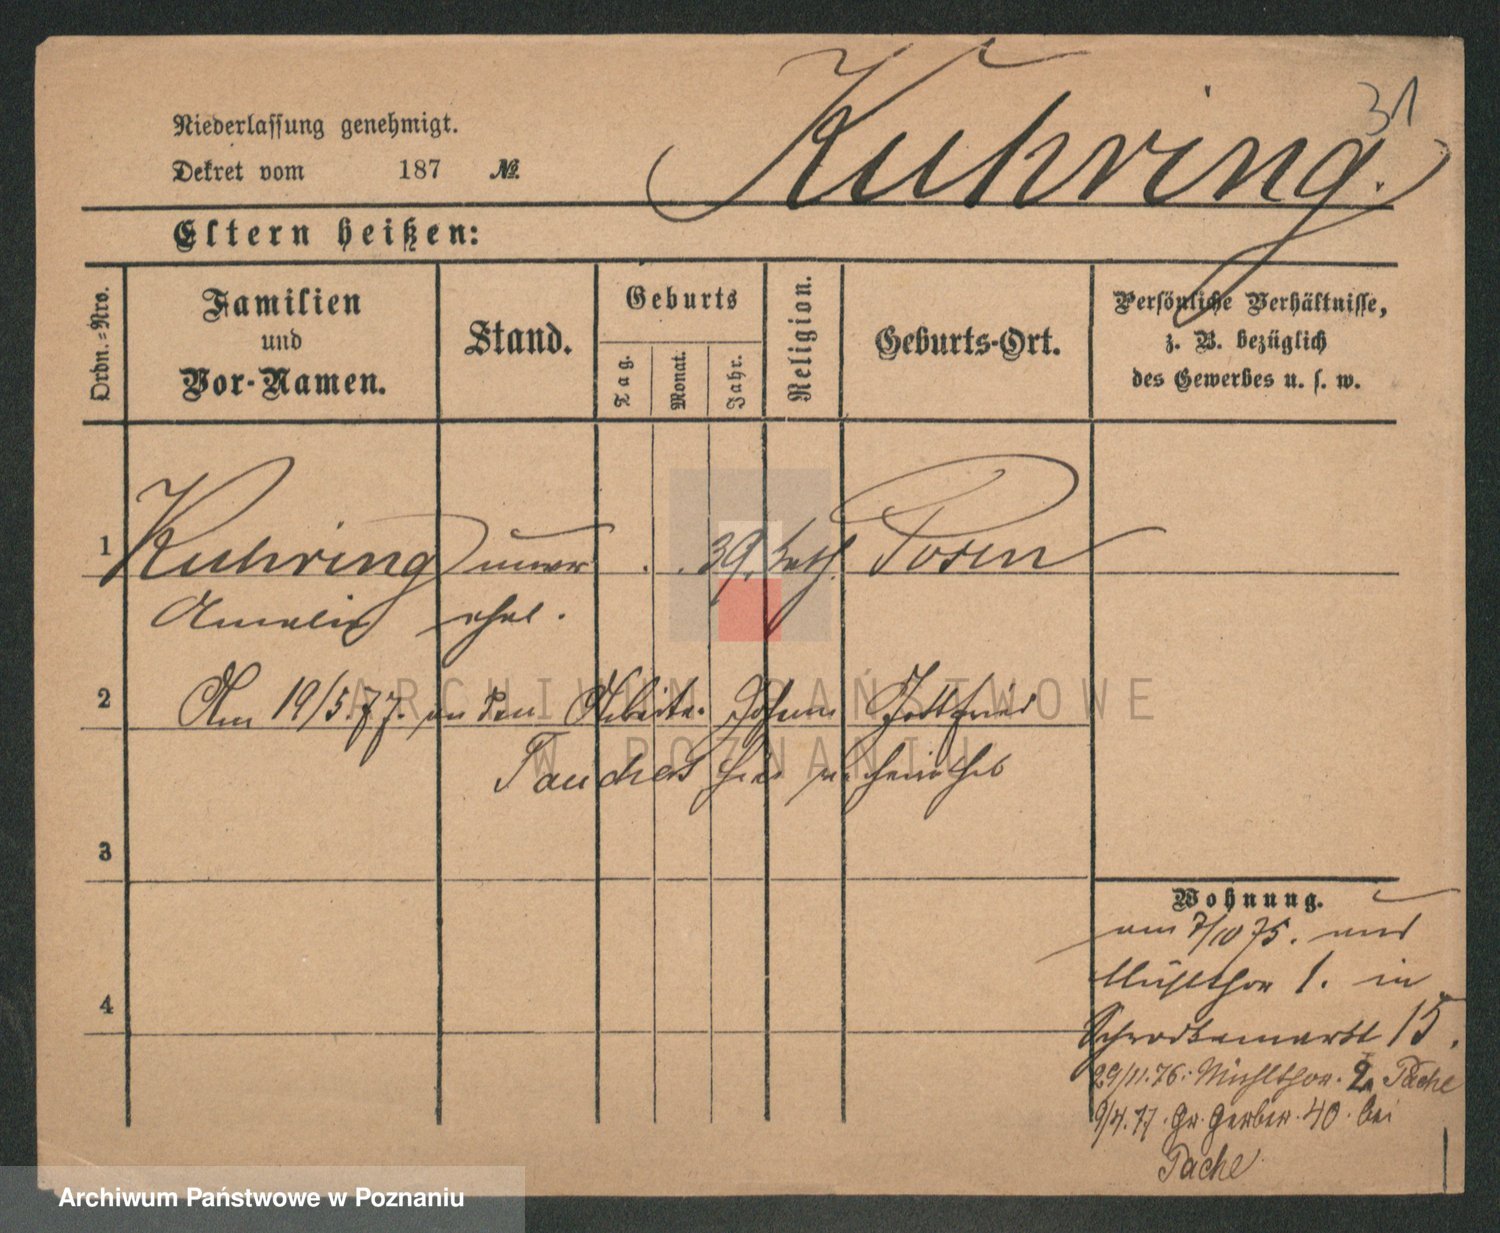 Kuhring.
31
Niederlassung genehmigt.
Dekret vom 187 №
Eltern heißen:
Ordn.-Nro.
Familien
und
Vor-Namen.
Stand.
Geburts
Tag.
Monat.
Jahr.
Religion.
Geburts-Ort.
Persönliche Verhältnisse,
z. B. bezüglich
des Gewerbes u. s. w.
1 Kuhring unver . . 39. kath. Posen
Amalie ehel.
2 Am 19/5.77. an den Arbeiter Johann Gottfried
hier verheirathet
3
4
Wohnung.
am 7/10 75. und
Mühlthor 1. in
Schrodkamarkt 15.
29/11.76. Mühlthor. 2. Pache
9/4.77. Gr. Gerber. 40. bei
Pache
ARCHIWUM PAŃSTWOWE
W POZNANIU
Archiwum Państwowe w Poznaniu